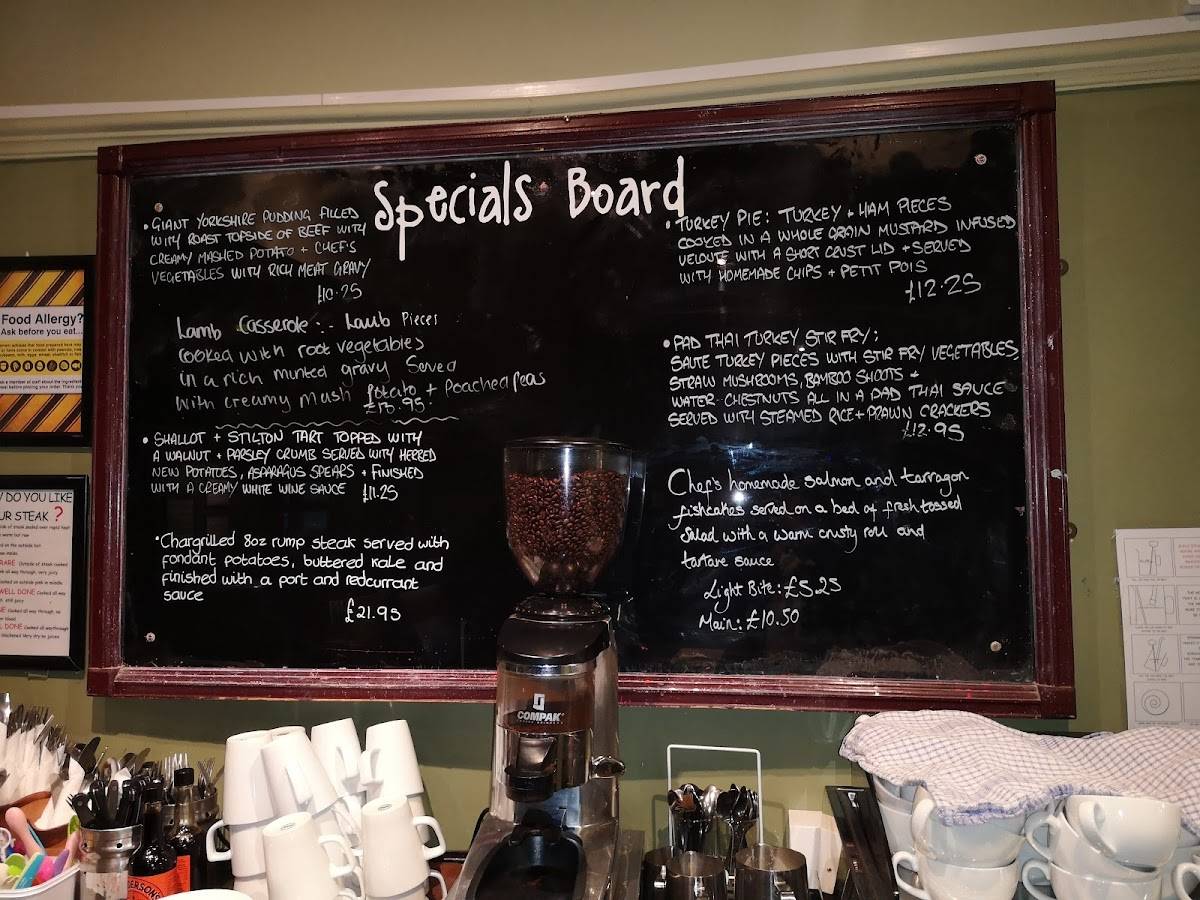 Specials Board
• GIANT YORKSHIRE PUDDING FILLED
WITH ROAST TOPSIDE OF BEEF WITH
CREAMY MASHED POTATO + CHEFS
VEGETABLES WITH RICH MEAT GRAVY
£10.25
Lamb Casserole:- Lamb Pieces
cooked with root vegetables
in a rich minted gravy Served
with creamy mash potato + Poached peas
• SHALLOT + STILTON TART TOPPED WITH
A WALNUT + PARSLEY CRUMB SERVED WITH HERBED
NEW POTATOES, ASPARAGUS SPEARS + FINISHED
WITH A CREAMY WHITE WINE SAUCE £11.25
• Chargrilled 8oz rump steak served with
fondant potatoes, buttered kale and
finished with a port and redcurrant
sauce
£21.95
• TURKEY PIE: TURKEY + HAM PIECES
COOKED IN A WHOLE GRAIN MUSTARD INFUSED
VELOUTE WITH A SHORT CRUST LID + SERVED
WITH HOMEMADE CHIPS + PETIT POIS
£12.25
• PAD THAI TURKEY STIR FRY:
SAUTE TURKEY PIECES WITH STIR FRY VEGETABLES,
STRAW MUSHROOMS, BAMBOO SHOOTS +
WATER CHESTNUTS ALL IN A PAD THAI SAUCE
SERVED WITH STEAMED RICE + PRAWN CRACKERS
£12.95
Chef's homemade salmon and tarragon
fishcakes served on a bed of fresh tossed
Salad with a warm crusty roll and
tartare sauce
Light Bite: £5.25
Main: £10.50
Food Allergy?
Ask before you eat...
DO YOU LIKE
UR STEAK ?
RARE
WELL DONE
DONE
COMPAK